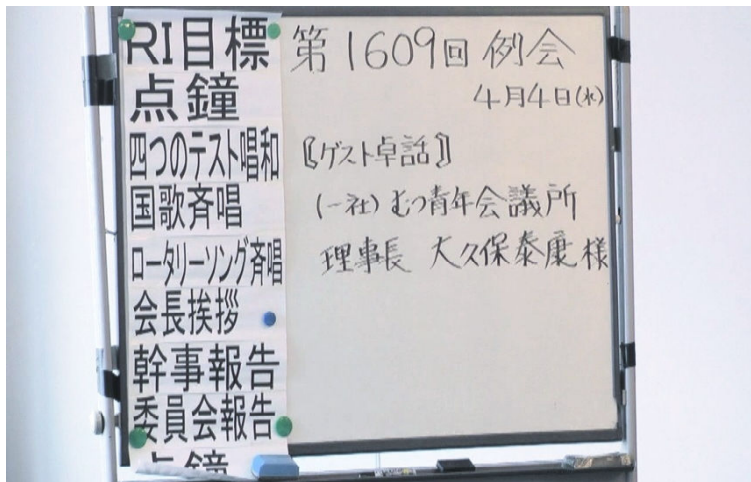 RI目標
点鐘
四つのテスト唱和
国歌斉唱
ロータリーソング斉唱
会長挨拶
幹事報告
委員会報告
点鐘
第1609回 例会
4月4日(水)
〖ゲスト卓話〗
(一社) むつ青年会議所
理事長 大久保泰康様